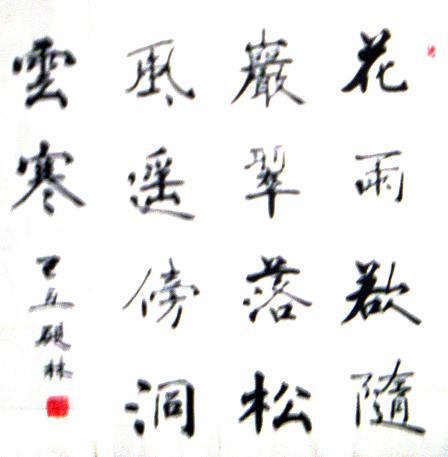 花雨欲隨
巖翠落松
風遥傍洞
雲寒
己丑 林